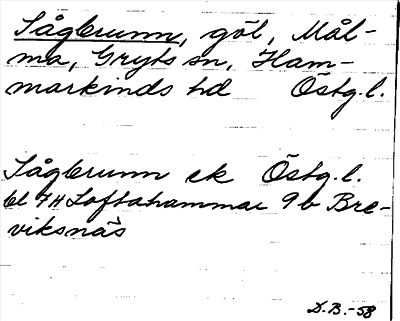 Sågbrunn, göl, Mål-
ma, Gryts sn, Ham-
markinds hd Östg.l.
Sågbrunn ek Östg.l.
bl 7H Loftahammar 9b Bre-
viksnäs
D.B.-58